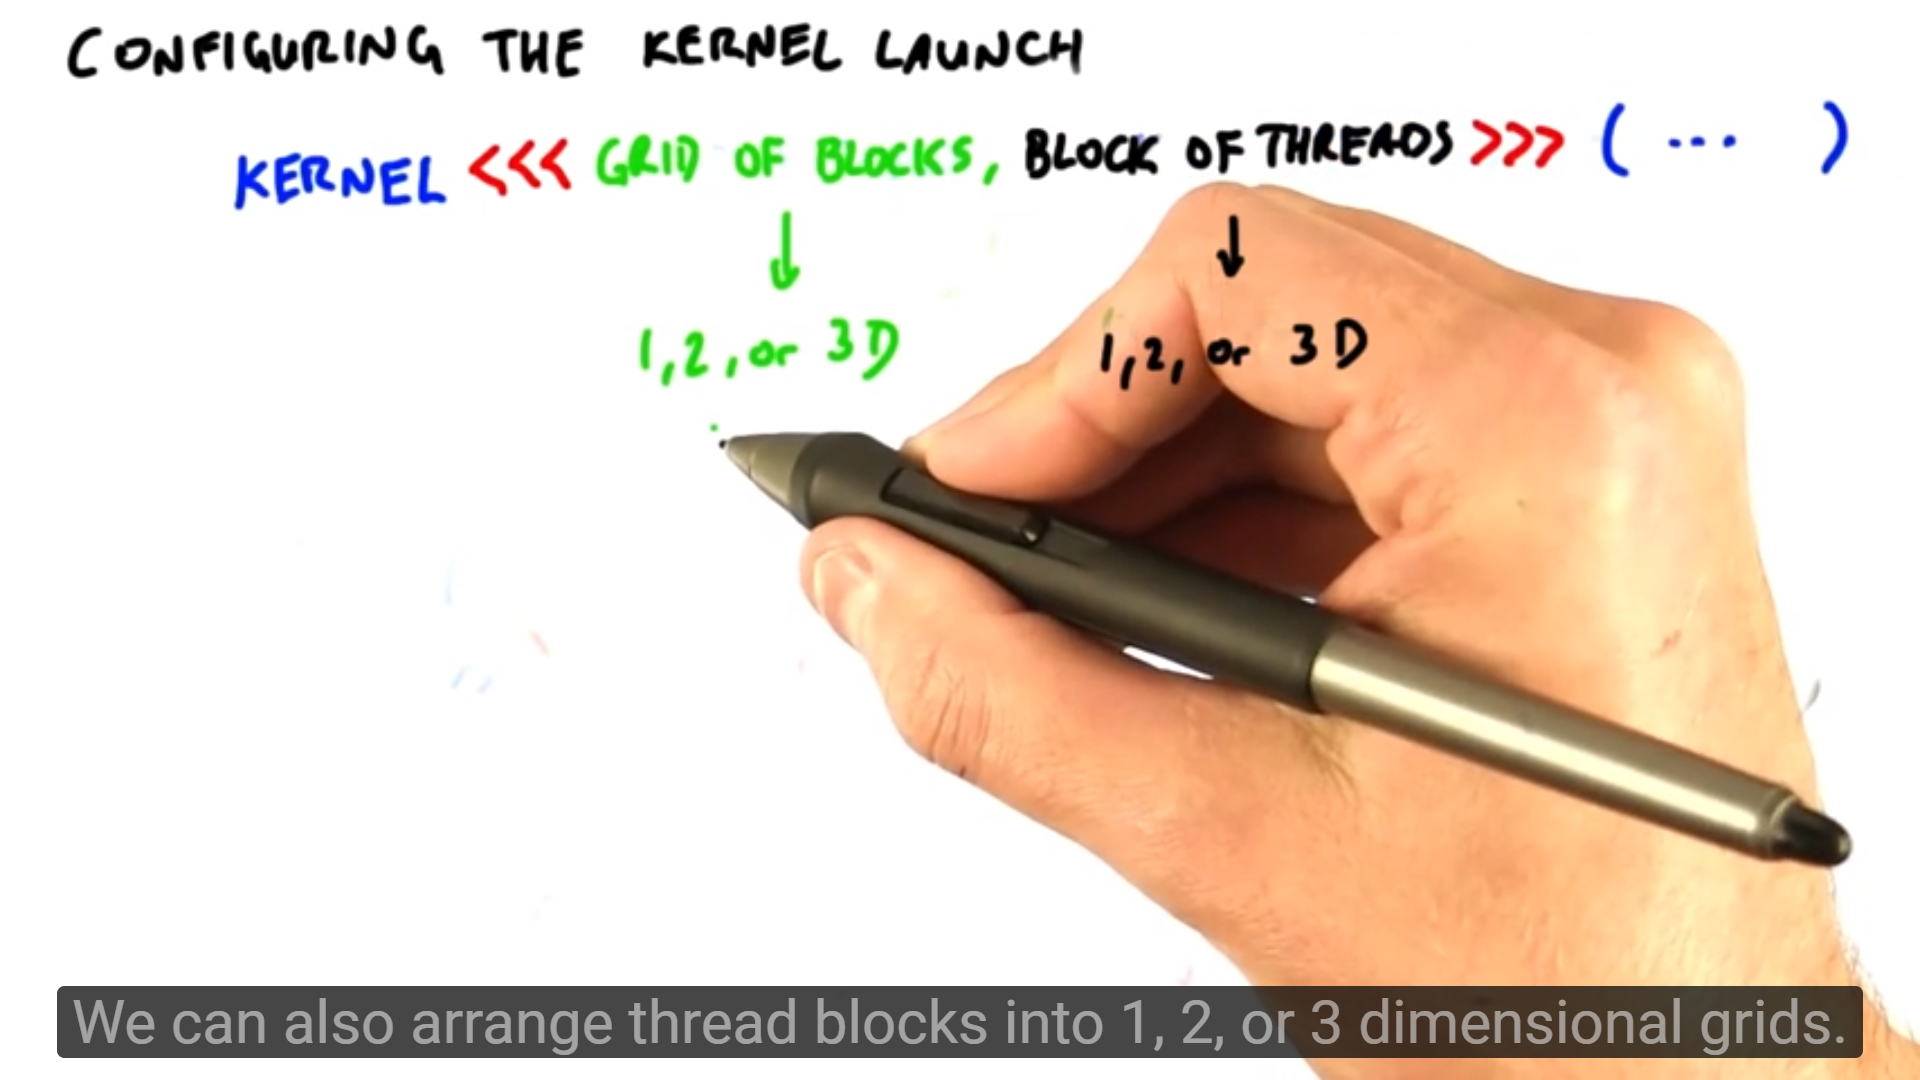 CONFIGURING THE KERNEL LAUNCH
KERNEL <<< GRID OF BLOCKS, BLOCK OF THREADS >>> ( ... )
1,2, or 3D 1,2, or 3D
We can also arrange thread blocks into 1, 2, or 3 dimensional grids.